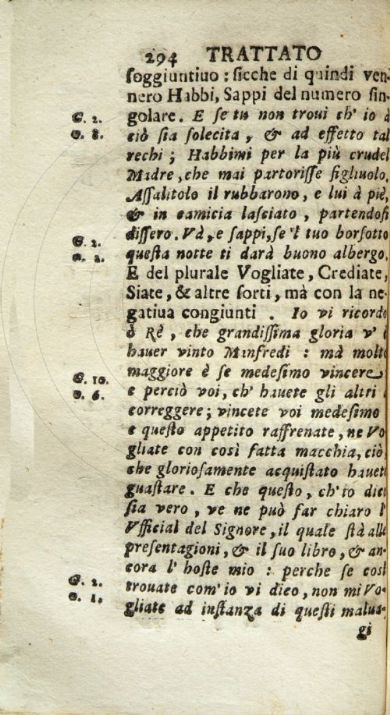 294 TRATTATO
soggiuntiuo : sicche di quindi ven-
nero Habbi, Sappi del numero sin-
G. 2. golare. E se tu non troui ch' io à
n. 8. ciò sia solecita, & ad effetto tal
rechi ; Habbimi per la più crudel
Madre, che mai partorisse figliuolo.
Assalitolo il rubbarono, e lui à piè,
& in camicia lasciato, partendosi
G. 2. dissero. Và, e sappi, se 'l tuo borsotto
n. 2. questa notte ti darà buono albergo.
E del plurale Vogliate, Crediate,
Siate, & altre sorti, mà con la ne-
gatiua congiunti . Io vi ricordo
ò Rè, che grandissima gloria v' è
hauer vinto Minfredi : mà molto
G. 10. maggiore è se medesimo vincere
n. 6. e perciò voi, ch' hauete gli altri
correggere; vincete voi medesimo
e questo appetito raffrenate, ne Vo-
gliate con così fatta macchia, ciò,
che gloriosamente acquistato hauete
guastare. E che questo, ch'io dico
sia vero, ve ne può far chiaro l'
Vfficial del Signore, il quale stà alle
presentagioni, & il suo libro, & an-
cora l' hoste mio : perche se così
G. 2. trouate com' io vi dico, non mi Vo-
n. 1. gliate ad instanza di questi malua-
gi